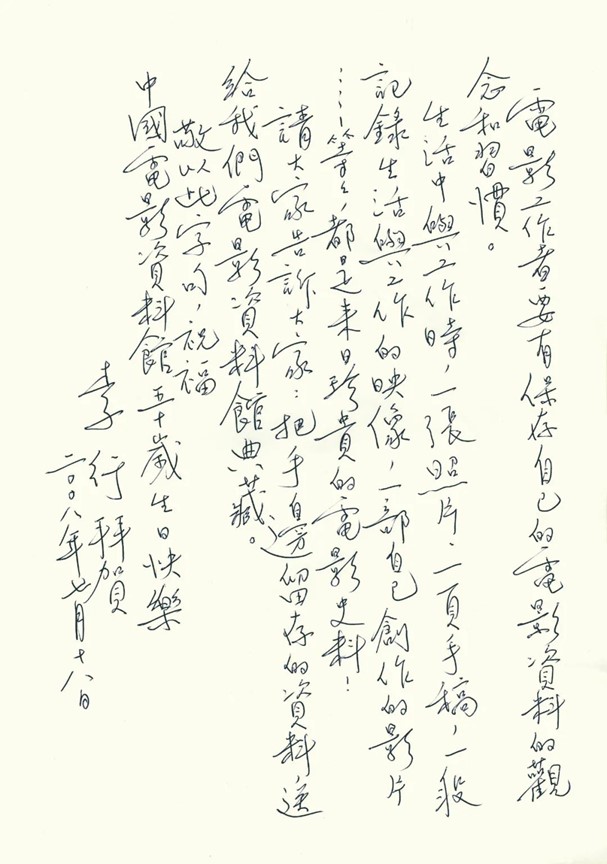 電影工作者要有保存自己的電影資料的觀
念和習慣。
生活中與工作時，一張照片、一頁手稿，一段
記錄生活與工作的映像，一部自己創作的影片
……等等，都是來日珍貴的電影史料！
請大家告訴大家：把手自旁邊留存的資料送
給我們電影資料館典藏。
敬以此字句，祝福
中國電影資料館五十歲生日快樂
李行拜賀
二〇〇八年七月十八日